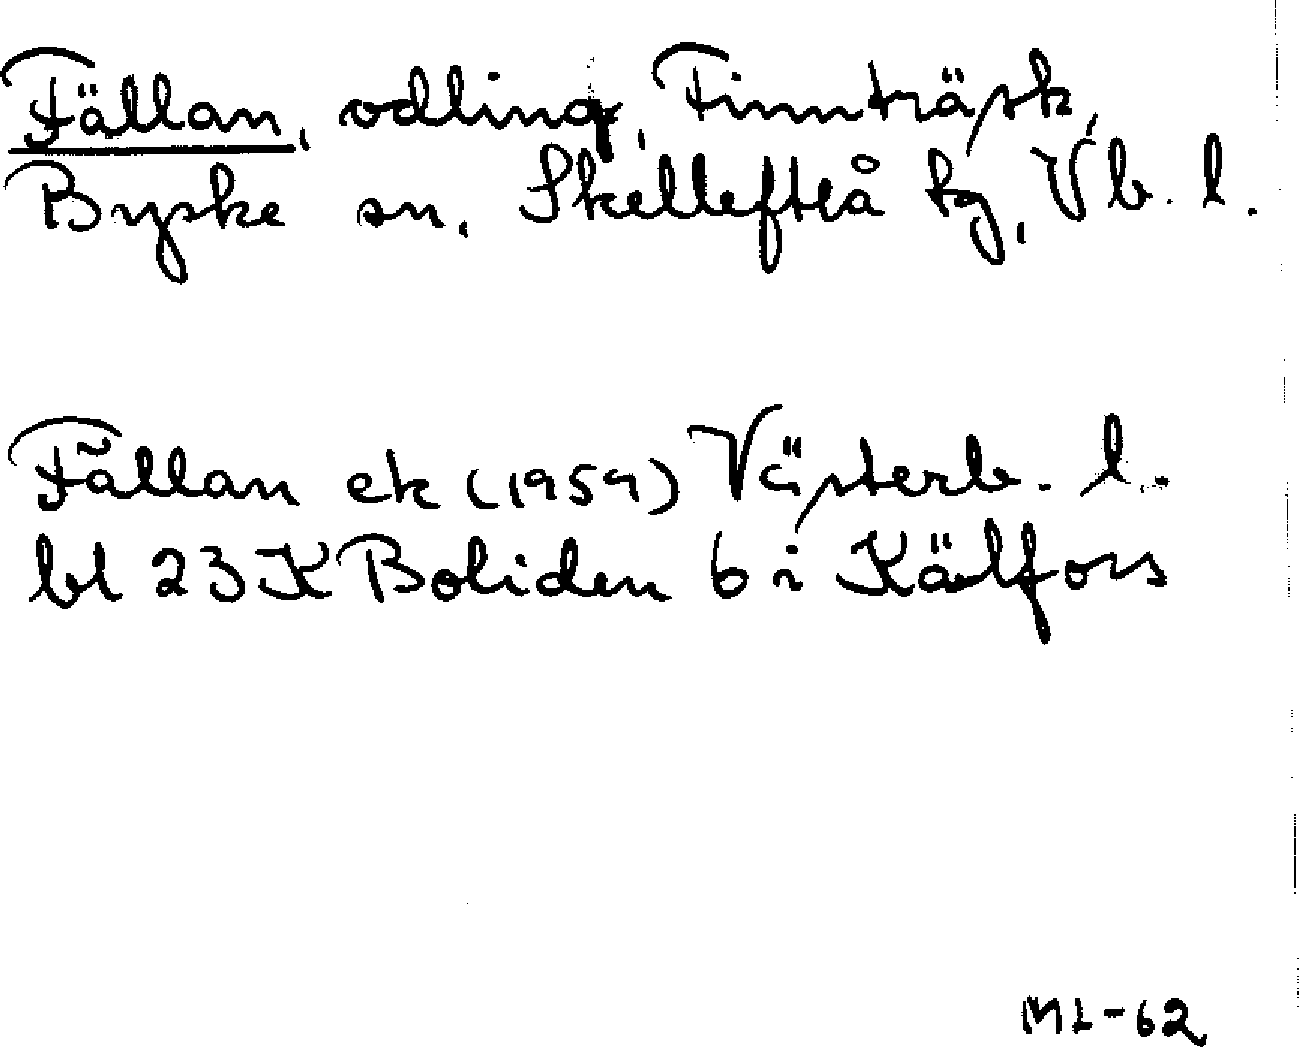 Fällan, odling, Finnträsk,
Byske sn, Skellefteå tg, Vb. l.
Fällan ek (1959) Västerb. l.
bl 23K Boliden 6 i Kälfors
ML-62